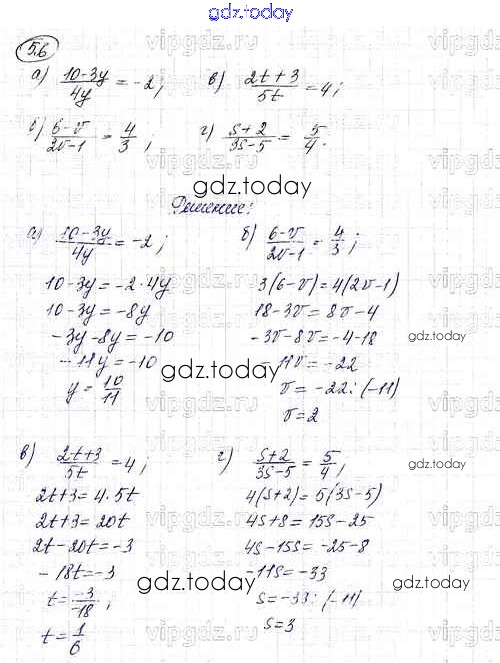 gdz.today
5.6
а) (10-3y)/4y = -2; в) (2t+3)/5t = 4;
б) (6-v)/(2v-1) = 4/3; г) (s+2)/(3s-5) = 5/4.
gdz.today
Решение:
а) (10-3y)/4y = -2; б) (6-v)/(2v-1) = 4/3;
10-3y = -2·4y 3(6-v) = 4(2v-1)
10-3y = -8y 18-3v = 8v-4
-3y-8y = -10 -3v-8v = -4-18
gdz.today
-11y = -10 -11v = -22
gdz.today
y = 10/11 v = -22:(-11)
v = 2
в) (2t+3)/5t = 4; г) (s+2)/(3s-5) = 5/4;
gdz.today
2t+3 = 4·5t 4(s+2) = 5(3s-5)
2t+3 = 20t 4s+8 = 15s-25
2t-20t = -3 4s-15s = -25-8
-18t = -3 -11s = -33
gdz.today
t = -3/-18; s = -33:(-11)
t = 1/6 s = 3
gdz.today